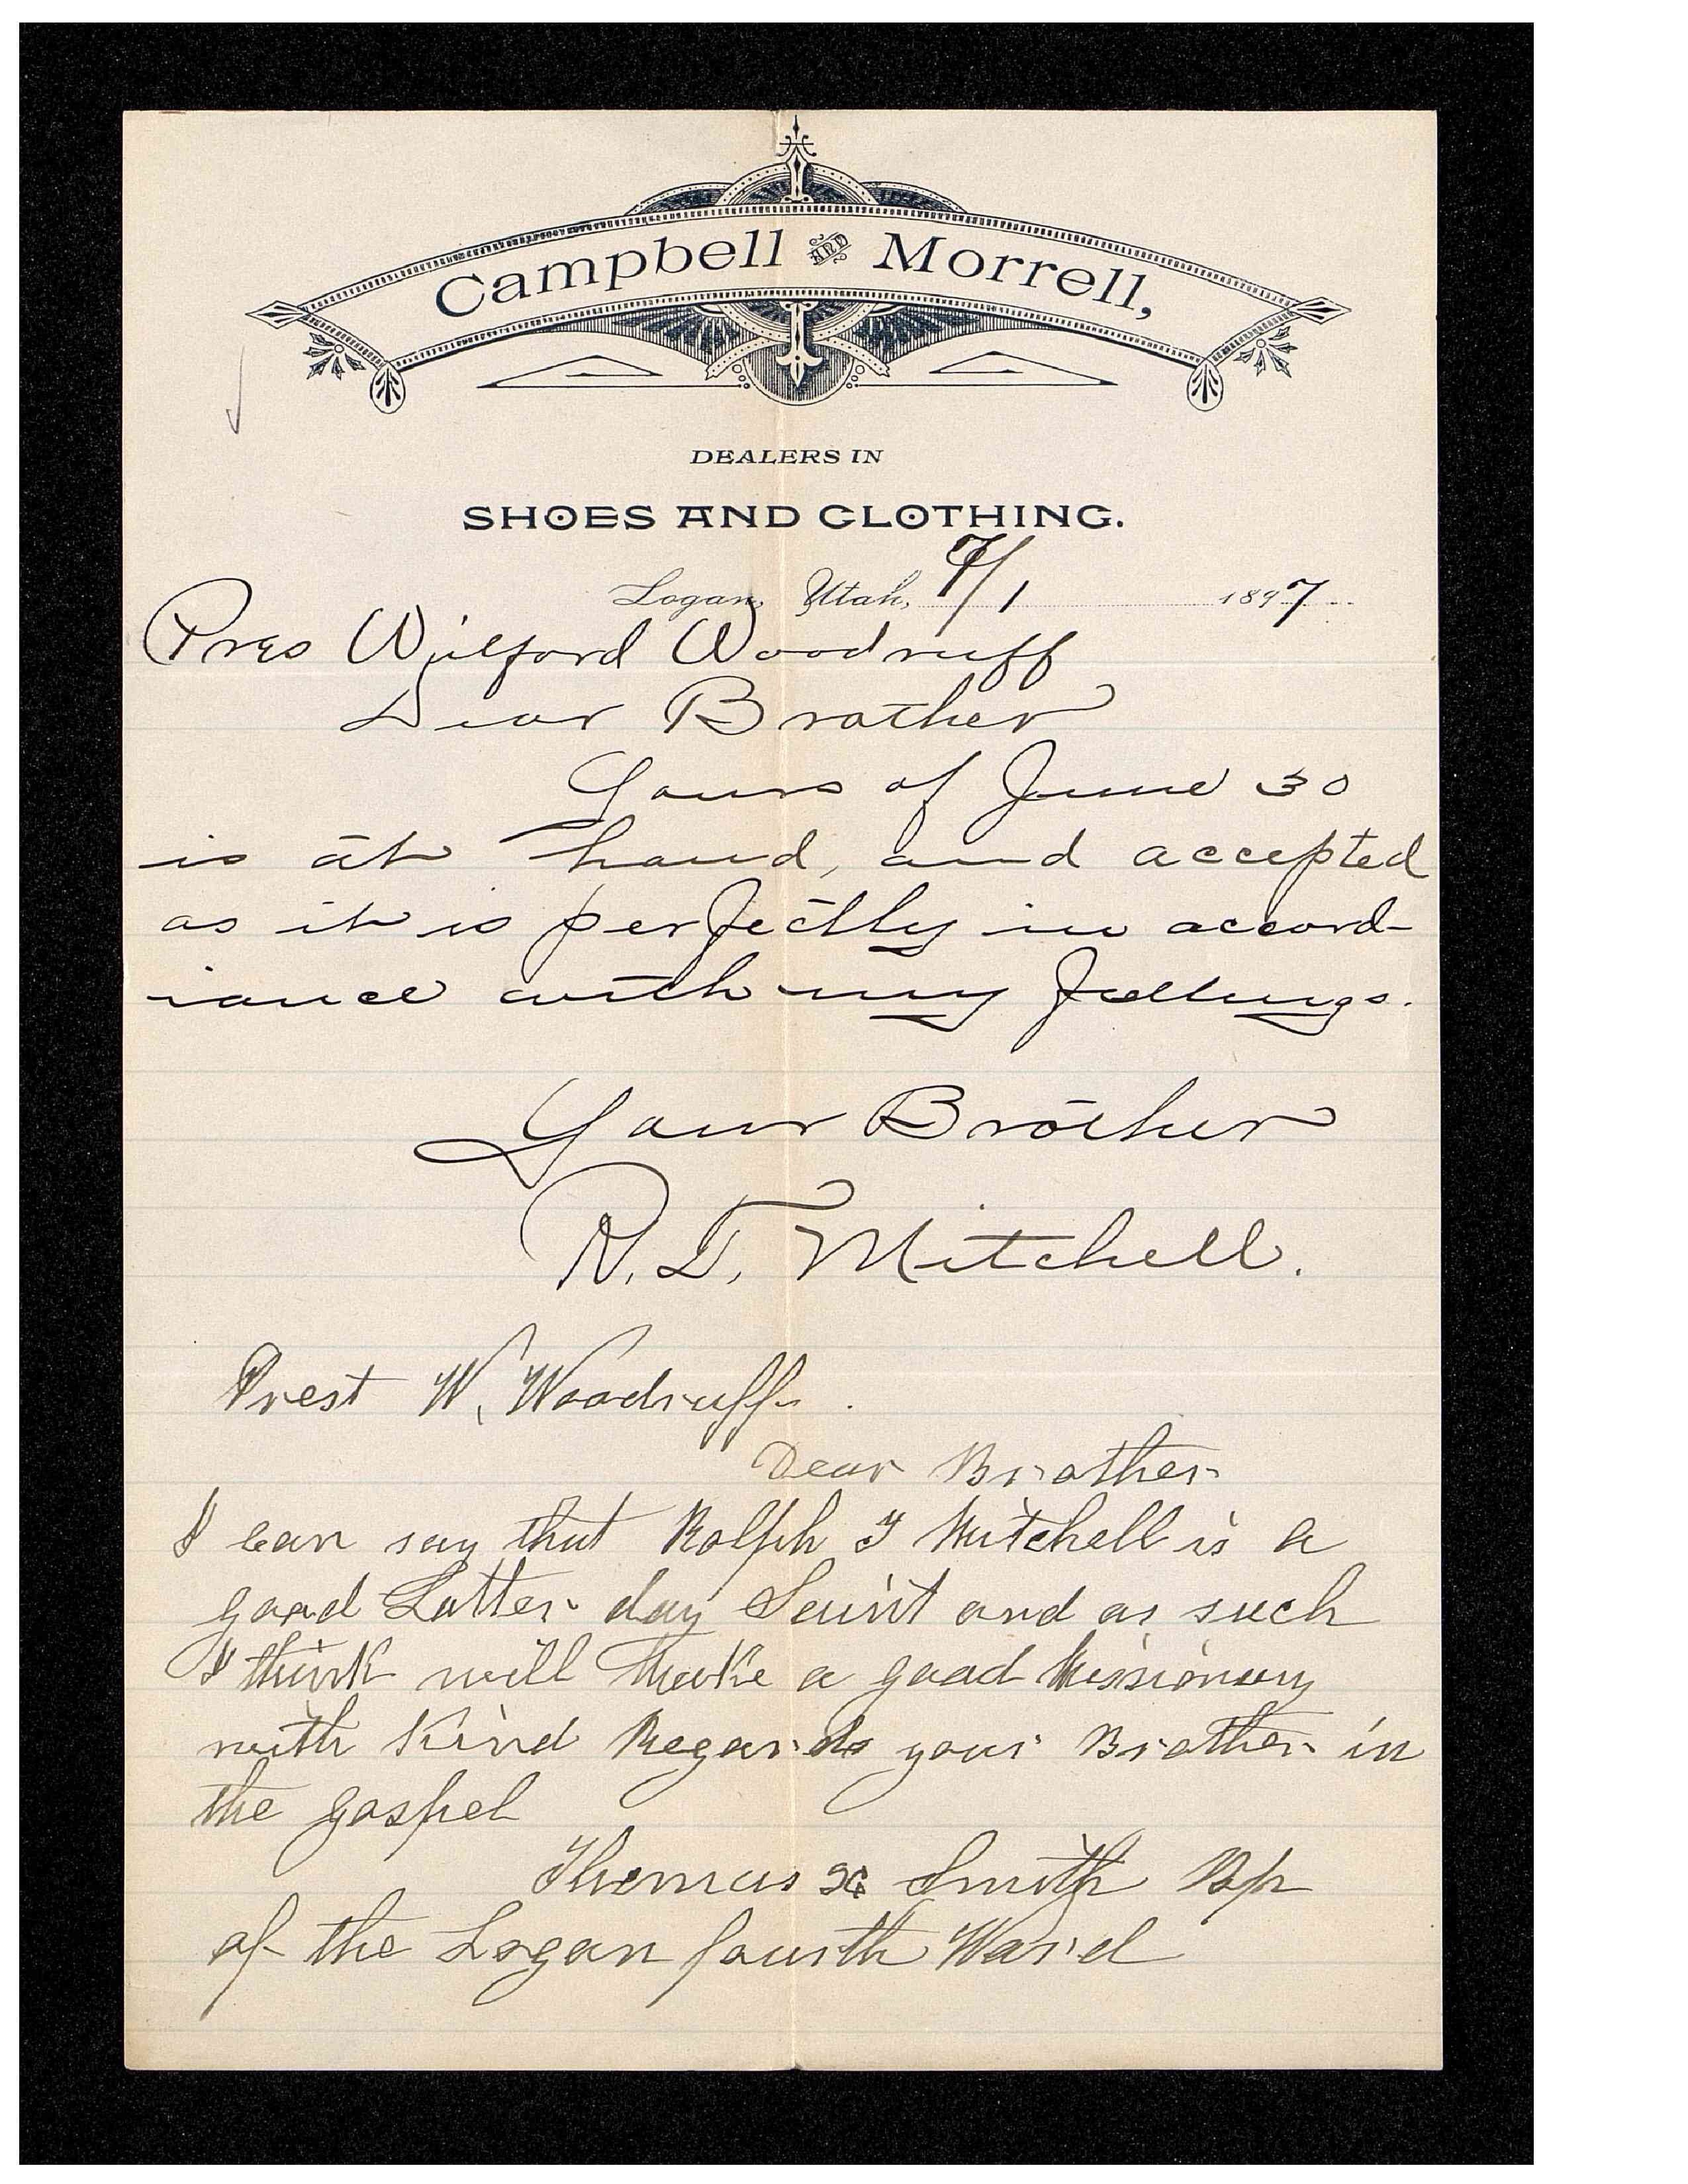 Campbell AND Morrell,
DEALERS IN
SHOES AND CLOTHING.
Logan, Utah, 7/1 1897
Pres Wilford Woodruff
Dear Brother
Yours of June 30
is at hand, and accepted
as it is perfectly in accord-
iance with my feelings.
Your Brother
R. T. Mitchell.
Prest W. Woodruff.
Dear Brother
I can say that Rolph T Mitchell is a
good Latter day Saint and as such
I think will Make a good Missionary
with Kind Regards your Brother in
the gospel
Thomas X Smith Bp
of the Logan fourth Ward